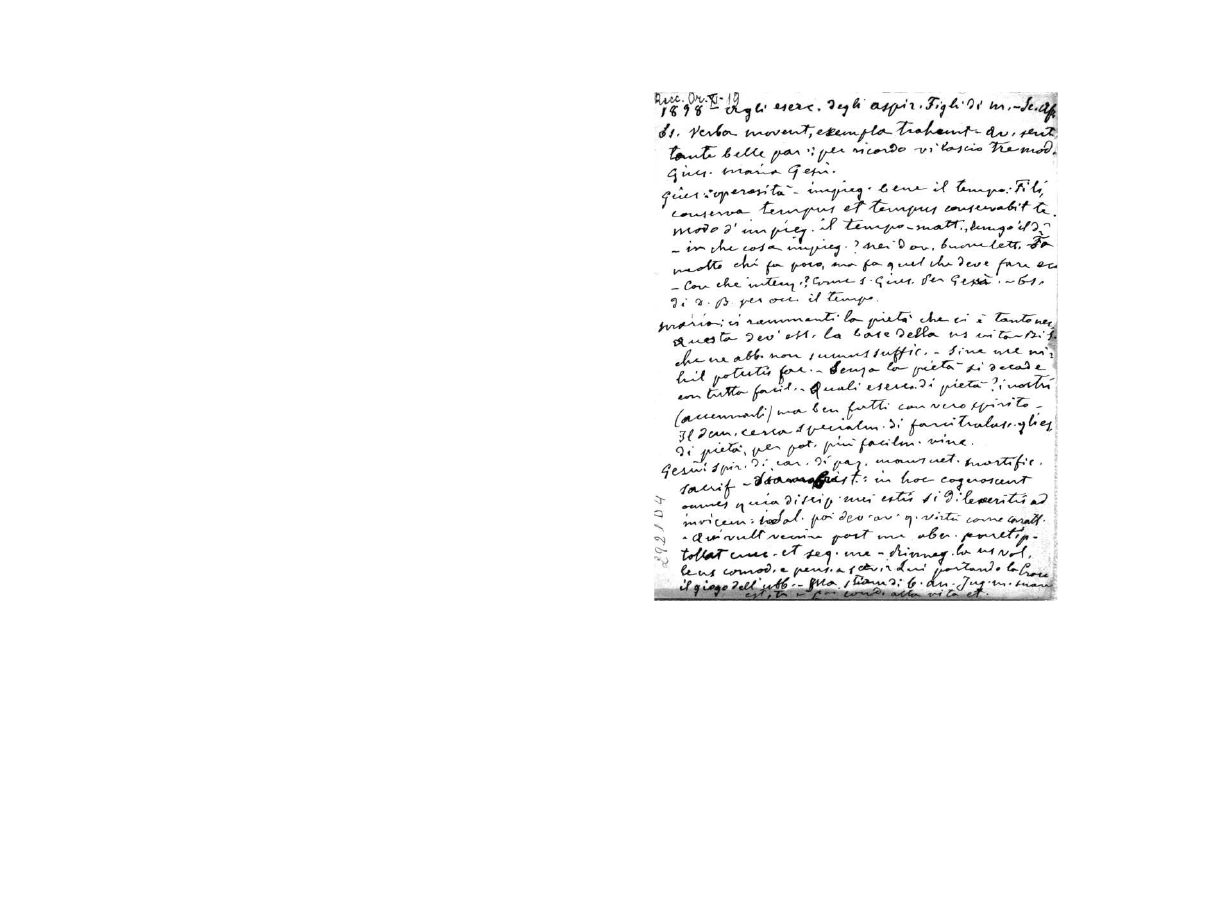 Risc. Or. XI - 19
1898 Agli eserc. degli aspir. Figli di M. - Sc. Ap
Es. Verba movent, exempla trahunt - Av. sent
tante belle par.: per ricordo vi lascio tre mod.
Gius. Maria Gesù.
Gius.: operosità - impieg. bene il tempo: Fili,
conserva tempus et tempus conservabit te.
Modo d'impieg. il tempo - matt., lungo il dì
- in che cosa impieg.? nei dov. buone lett. Fa
molto chi fa poco, ma fa quel che deve fare
- Con che intenz.? Come S. Gius. per Gesù. - Es.
di D. B. per occ. il tempo.
Maria: ci rammenti la pietà che ci è tanto nec.
Questa dev'ess. la base della ns vita
che ne abb. non sumus suffic. - Sine me ni-
hil potestis fac. - Senza la pietà si decade
con tutta facil. - Quali eserc. di pietà? i nostri
(accennarli) ma ben fatti con vero spirito -
Il dem. cerca specialm. di farci tralasc. gli es.
di pietà, per pot. più facilm. vinc.
Gesù: spir. di car. di paz. mansuet. mortific.
sacrif - in hoc cognoscent
omnes quia discip. mei estis si dilexeritis ad
invicem: poi dev. av. q. virtù come caratt.
- Qui vult venire post me abn. semetip-
tollat cruc. et seq. me - rinneg. la ns vol.
le ns comod. e pens. a servir Lui portando la Croce
il giogo dell'ubb. - Ma stiam di b. an. Jug. m. suave
est, poi alla vita et.
292/D4